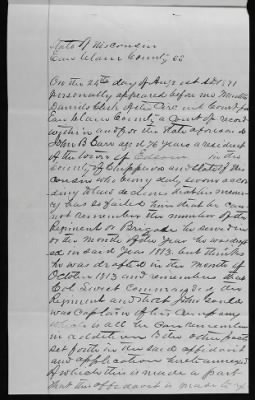 State of Wisconsin
Eau Claire County SS
On the 24th day of August A.D. 1871
personally appeared before me
Davids Clerk of the Circuit Court for
Eau Claire County a Court of record
within and for the State aforesaid
John B Carr aged 76 years a resident
of the town of Edson in the
County of Chippewa and State of Wis
consin who being duly sworn accor
ding to law declares that his memo
ry has so failed him that he can
not remember the number of the
Regiment or Brigade he served in
or the Month of the Year he was dry
ed in said Year 1813. but thinks
he was drafted in the Month of
October 1813 and remembers that
Col Sweet Commanded the
Regiment and that John Gould
was Captain of his Company
which is all he can remember
in addition to the other facts
set forth in the said affidavit
and application hereto annexed
of which this is made a part
that this affidavit is made to